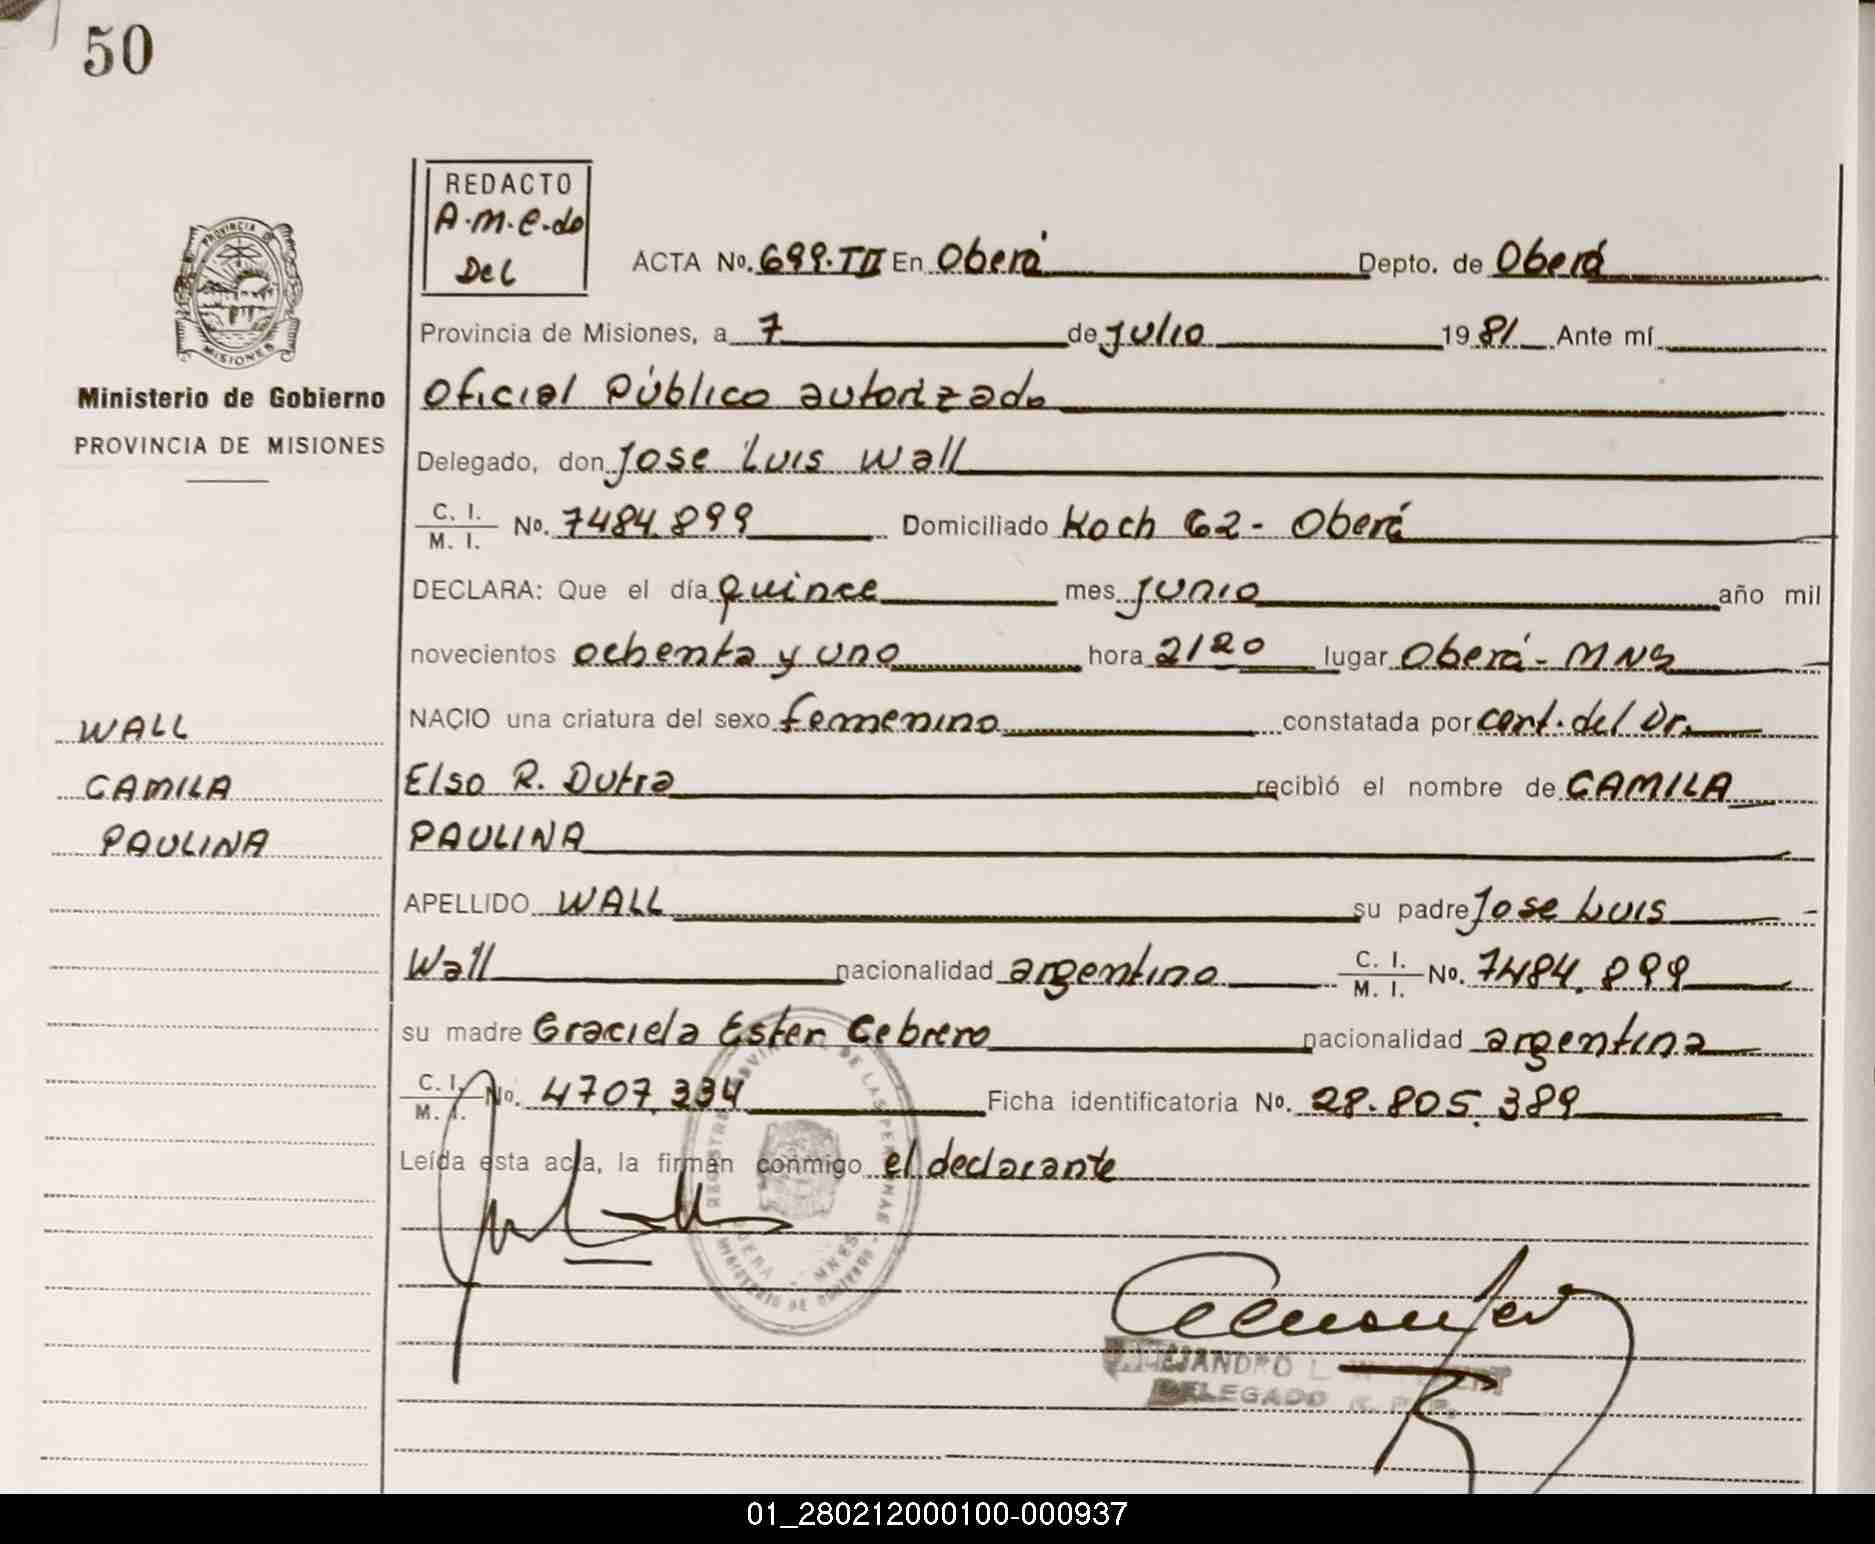 50
REDACTO
A.m.e.do
Del
ACTA No. 699.TII En Oberá Depto. de Oberá
Provincia de Misiones, a 7 de julio 1981 Ante mí
Oficial Público autorizado
Delegado, don Jose Luis Wall
C. I.
M. I. No. 7484.899 Domiciliado Koch 62 - Oberá
DECLARA: Que el día quince mes junio año mil
novecientos ochenta y uno hora 2120 lugar Oberá - MNS
NACIO una criatura del sexo femenino constatada por cert. del Dr.
Elso R. Dutra recibió el nombre de CAMILA
PAULINA
APELLIDO WALL su padre Jose Luis
Wall nacionalidad argentino C. I.
M. I. No. 7484.899
su madre Graciela Ester Cebrero nacionalidad argentina
C. I.
M. I. No. 4707.334 Ficha identificatoria No. 28.805.389
Leída esta acta, la firman conmigo el declarante
PROVINCIA DE
MISIONES
Ministerio de Gobierno
PROVINCIA DE MISIONES
WALL
CAMILA
PAULINA
DE LAS PERSONAS
MINISTERIO DE GOBIERNO
OBERA - MNES
DELEGADO
01_280212000100-000937